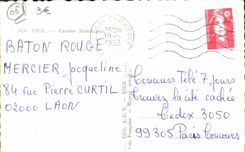 06
3€
NICE - Casino Municipal
1993
BATON ROUGE
MERCIER Jacqueline
84 rue Pierre CURTIL
02000 LAON
Concours Télé 7 Jours
Trouvez la cité cachée
Cedex 3050
99305 Paris Concours